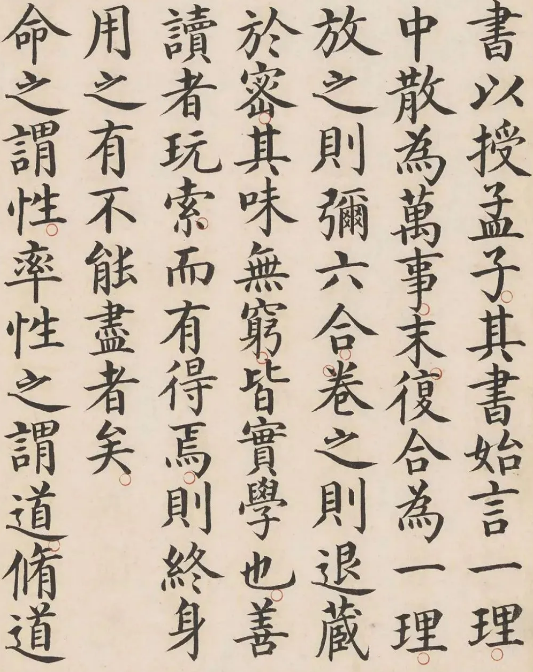 書以授孟子其書始言一理
中散為萬事末復合為一理
放之則彌六合卷之則退藏
於密其味無窮皆實學也善
讀者玩索而有得焉則終身
用之有不能盡者矣
命之謂性率性之謂道脩道